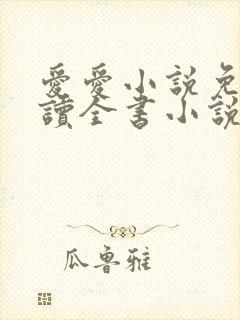 愛愛小説免
讀全書小說
瓜魯雅